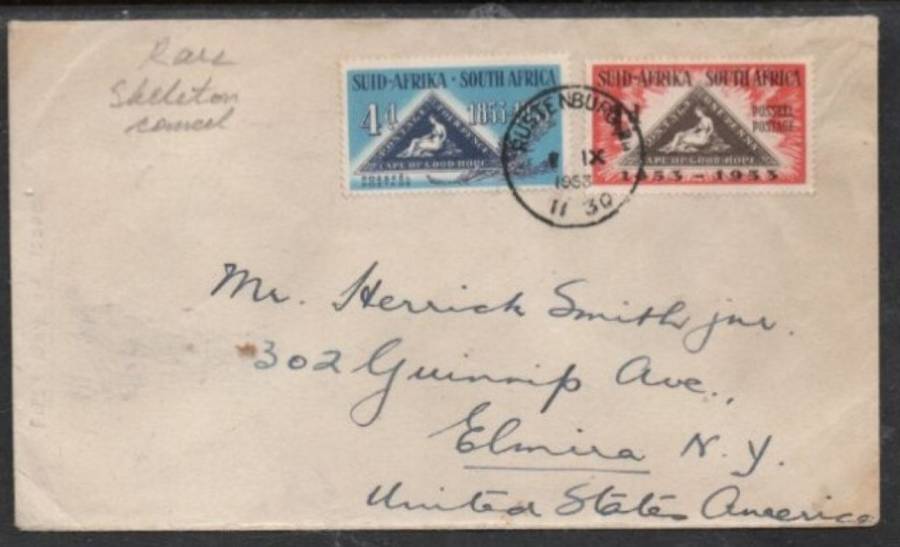 Rare
Skeleton
cancel
SUID-AFRIKA · SOUTH AFRICA
4d
CAPE OF GOOD HOPE
SUID-AFRIKA SOUTH AFRICA
POSSEËL
POSTAGE
CAPE OF GOOD HOPE
1853-1953
RUSTENBURG
IX
1953
11 30
Mr. Herrick Smith jnr.
302 Guinnip Ave.,
Elmira N.Y.
United States America